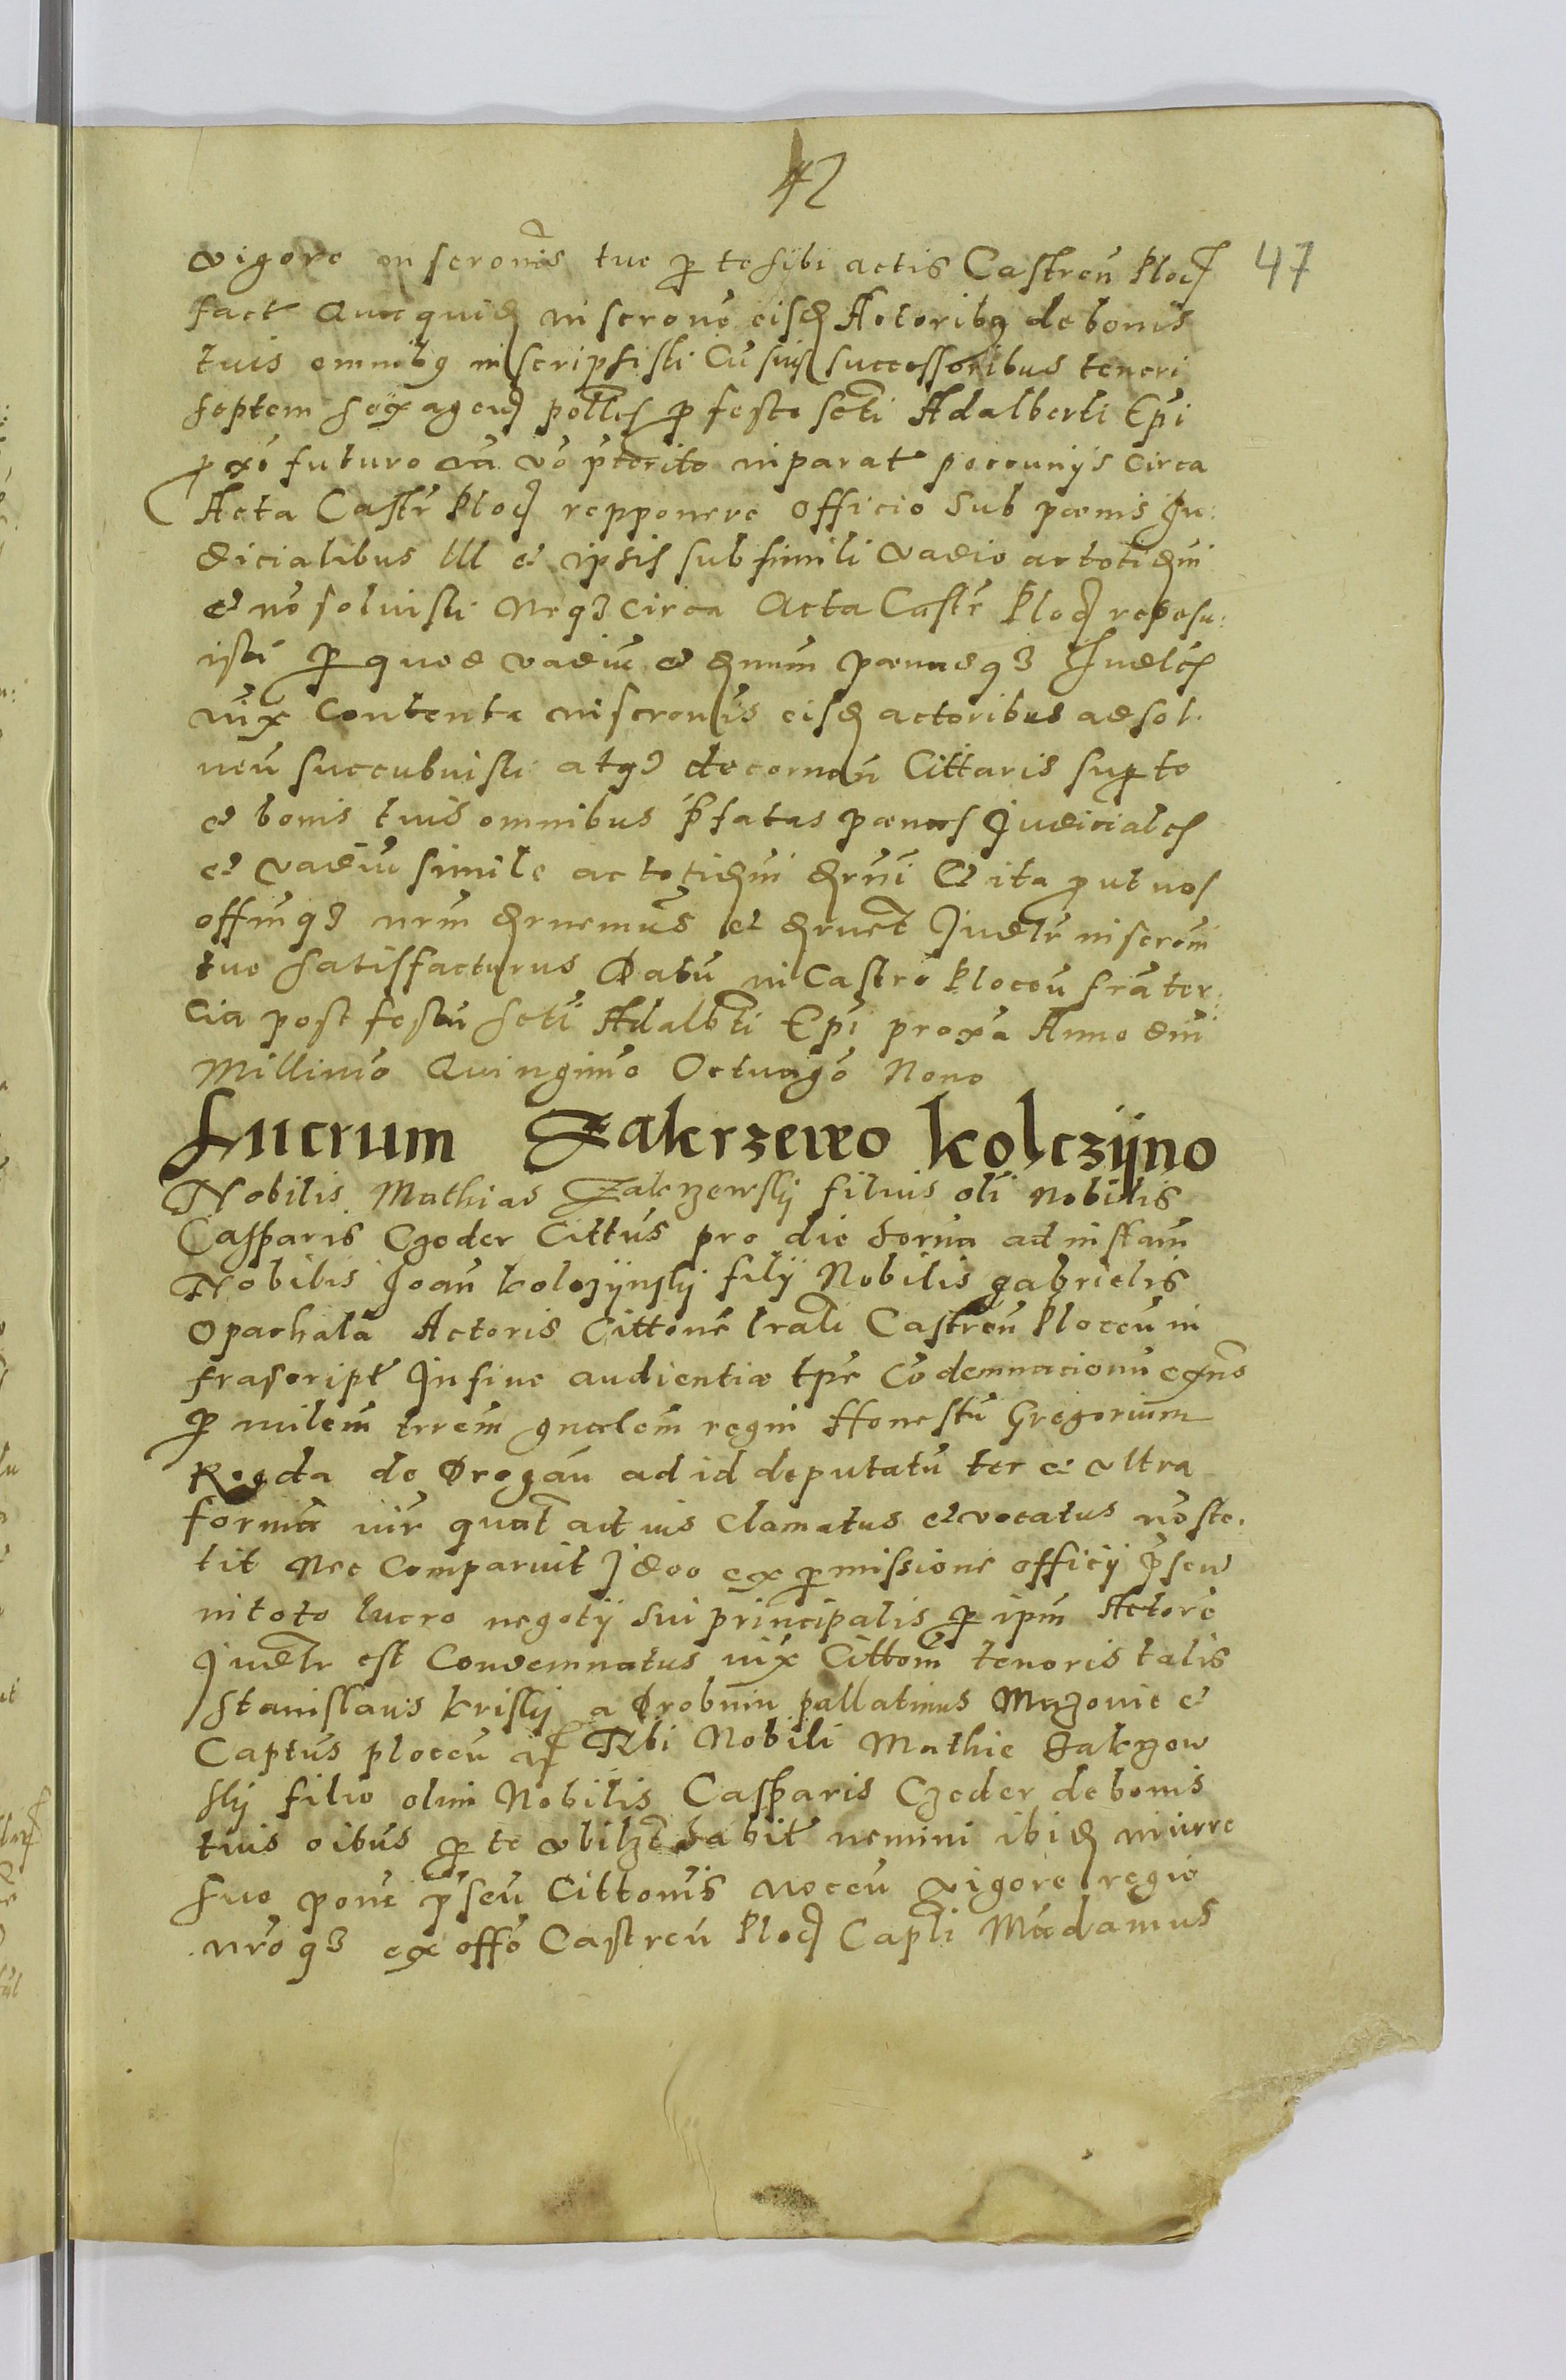 42
47
vigore inscronis tue p te sibi actis Castren Ploc
fact Quaquid inscrone eisd Actoribq de bonis
tuis omnibq inscripsisti Cu suis successoribus teneri
septem sexagend polles p festo scti Adalberti Epi
pxo futuro na vo pterito in parat pecunijs circa
Acta Castr Ploc repponere officio sub pœnis Ju:
dicialibus lll et ipsis sub simili vadio ac totidm
et no solvisti Neqz circa Acta Castr Ploc reposu:
isti p quod vadiu et dnum pœnasqz Judles
iux contenta inscronis eisd actoribus ad sol
uen succubuisti atqz decernen Cittaris sup te
et bonis tuis omnibus pfatas pœnas Judiciales
et vadiu simile ac totidm drni Et ita put nos
offmqz nrm drnemus et drnet Judlr inscroni
tue satisfacturus Datu in Castro Plocen fra ter:
cia post festu scti Adalbti Epi proxa Anno dni
Millimo Quingimo Octuago Nono
Lucrum Zakrzewo Kolczyno
Nobilis Mathias Zakrzewsky filius oli Nobilis
Casparis Czeder Cittus pro die horna ad instam
Nobilis Joan Kolczynsky filij Nobilis gabrielis
Opachala Actoris Cittone lrali Castren Plocen in
frascript In fine audientiæ tpre Codemnacionu exns
p milem trrem gnalem regni Honestu Gregorium
Rogda de Drogan ad id deputatu ter et vltra
forma iur quat ad ius clamatus et vocatus no ste:
tit Nec Comparuit Ideo ex pmissione officij psen
in toto lucro negotij sui principalis p ipm Actore
Judlr est Condemnatus iux Cittom tenoris talis
Stanislaus krisky a Drobnin pallatinus Mazovie et
Captus plocen Tibi Nobili Mathie Zakrzew
sky filio olim Nobilis Casparis Czeder de bonis
tuis oibus p te vbilzt habit nemini ibid in iurre
suo pone psen Cittonis nocen vigore regio
nroqz ex offo Castren Ploc Capli Madamus